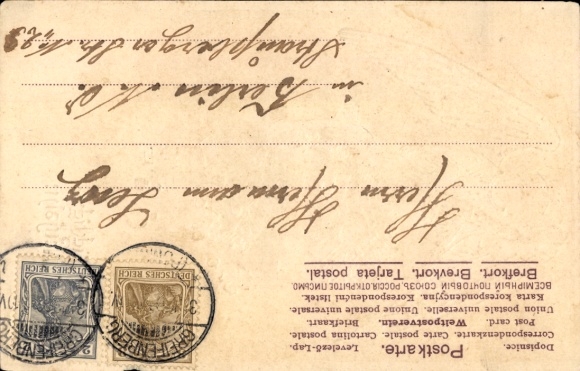 Postkarte.
Dopisnice. Levelező-Lap.
Correspondenzkarte. Carte postale. Cartolina postale
Post card. Weltpostverein. Briefkaart.
Union postale universelle. Unione postale universale
Karta korespondencyjna. Korespondenční lístek.
ВСЕМІРНЫЙ ПОЧТОВЫЙ СОЮЗЪ РОССІЯ. ОТКРЫТОЕ ПИСЬМО.
Brefkort. Brevkort. Tarjeta postal.
DEUTSCHES REICH
DEUTSCHES REICH
2
GREIFENBERG
GREIFENBERG
Herrn Hermann
in Berlin N. O.
Str. N. 29